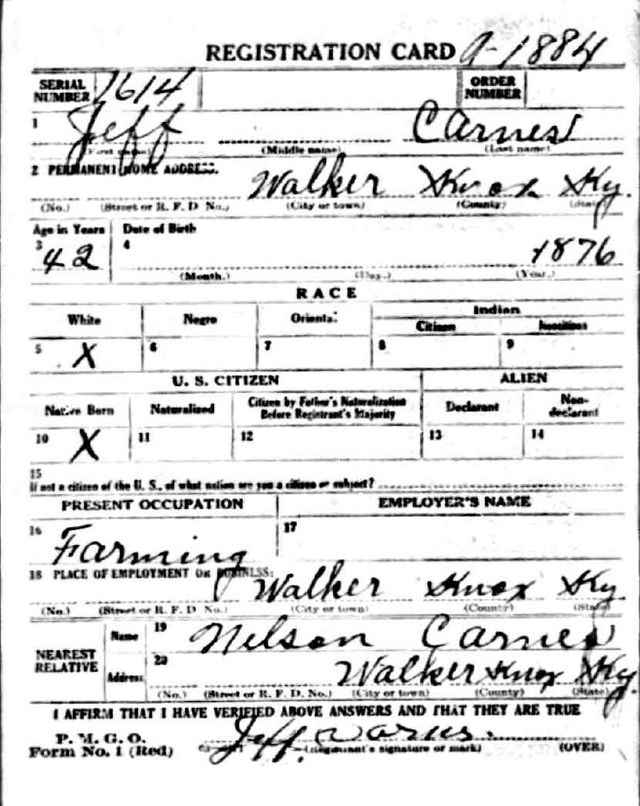 REGISTRATION CARD A-1884
SERIAL NUMBER 1614 ORDER NUMBER
1 Jeff Carnes
(First name) (Middle name) (Last name)
2 PERMANENT HOME ADDRESS.
Walker Knox Ky.
(No.) (Street or R. F. D No.) (City or town) (County) (State)
Age in Years Date of Birth
3 42 4 1876
(Month.) (Day.) (Year.)
RACE
White Negro Oriental Indian
Citizen Noncitizen
5 X 6 7 8 9
U. S. CITIZEN ALIEN
Native Born Naturalized Citizen by Father's Naturalization Before Registrant's Majority Declarant Non-declarant
10 X 11 12 13 14
15
If not a citizen of the U. S., of what nation are you a citizen or subject?
PRESENT OCCUPATION EMPLOYER'S NAME
16 Farming 17
18 PLACE OF EMPLOYMENT OR BUSINESS:
Walker Knox Ky
(No.) (Street or R. F. D. No.) (City or town) (County) (State)
NEAREST RELATIVE
Name 19 Nelson Carnes
Address 20 Walker Knox Ky
(No.) (Street or R. F. D. No.) (City or town) (County) (State)
I AFFIRM THAT I HAVE VERIFIED ABOVE ANSWERS AND THAT THEY ARE TRUE
P. M. G. O.
Form No. 1 (Red) Jeff Carnes.
(Registrant's signature or mark) (OVER)